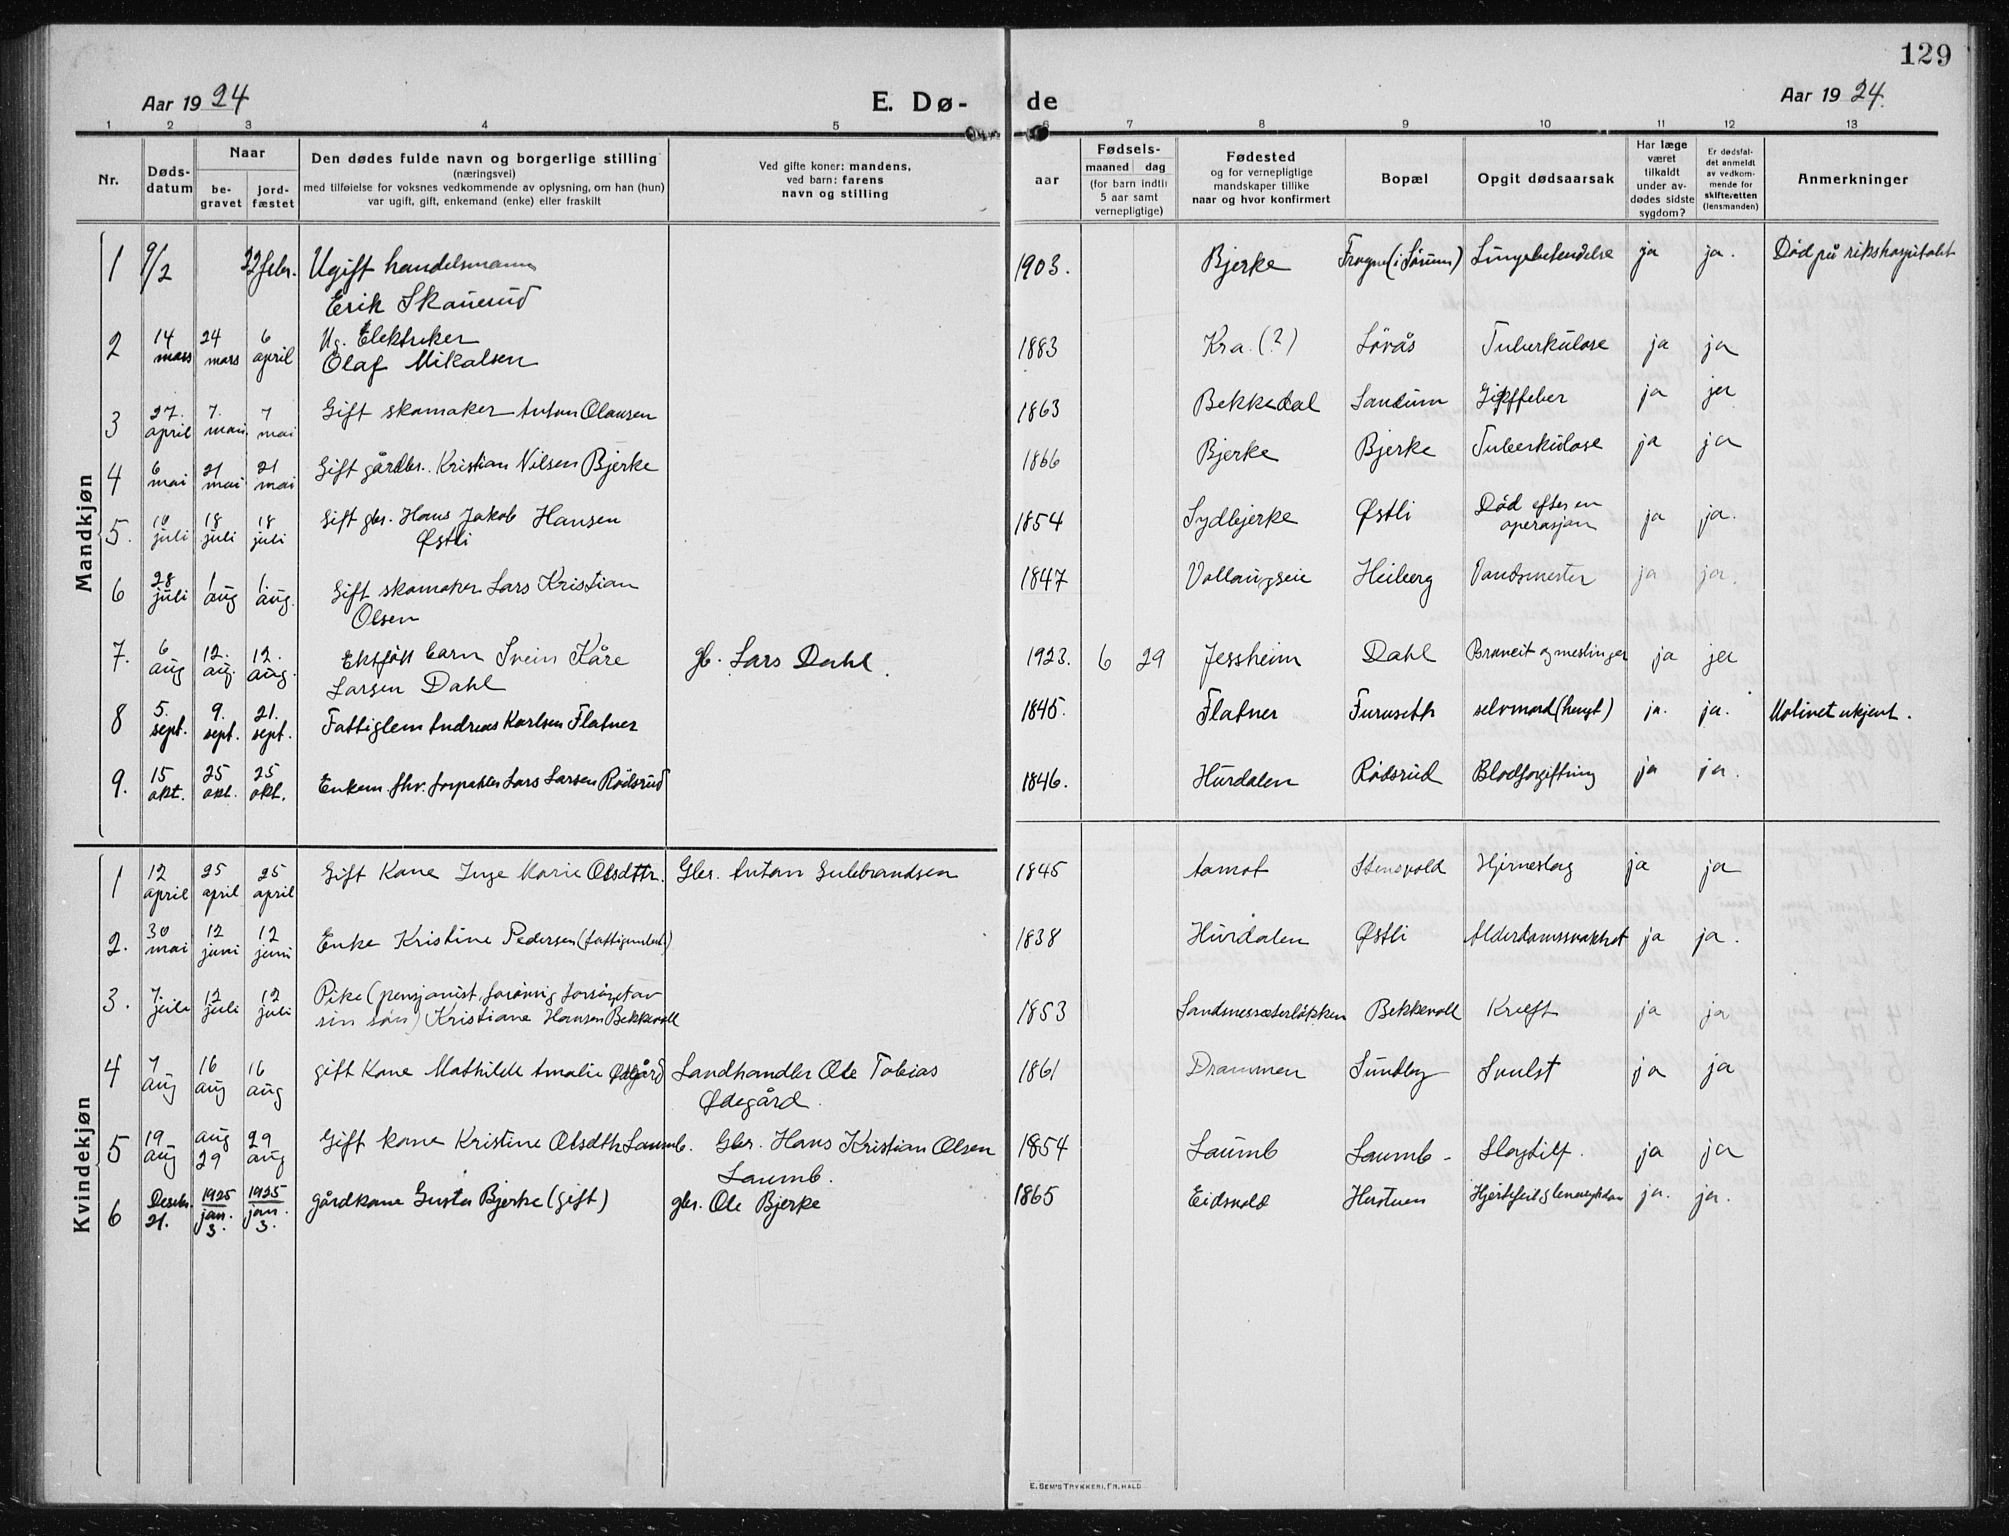 129
Aar 1924 E. Dø- de Aar 1924.
1 2 3 3 4 5 6 7 8 9 10 11 12 13
Nr. Døds-datum Naar be-gravet jord-fæstet Den dødes fulde navn og borgerlige stilling (næringsvei) med tilføielse for voksnes vedkommende av oplysning, om han (hun) var ugift, gift, enkemand (enke) eller fraskilt Ved gifte koner: mandens, ved barn: farens navn og stilling aar Fødsels- maaned dag (for barn indtil 5 aar samt vernepligtige) Fødested og for vernepligtige mandskaper tillike naar og hvor konfirmert Bopæl Opgit dødsaarsak Har læge været tilkaldt under av-dødes sidste sygdom? Er dødsfal-det anmeldt av vedkom-mende for skifteretten (lensmanden) Anmerkninger
Mandkjøn
1 9/2 22 febr. Ugift handelsmann 1903. Bjerke Frogner (i Sørum) Lungebetendelse ja ja. Død på rikshospitalet
Erik Skauerud
2 14 mars 24 mars 6 april Ug. Elektriker 1883 Kra. (?) Løvås Tuberkulose ja ja
Olaf Mikalsen
3 27. april 7. mai. 7 mai Gift skomaker Anton Olausen 1863 Bekkedal Sandum Giktfeber ja ja
4 6 mai 21 mai 21 mai Gift gårdbr. Kristian Nilsen Bjerke 1866 Bjerke Bjerke Tuberkulose ja ja
5. 10 juli 18 juli 18 juli Gift gbr. Hans Jakob Hansen 1854 Sydbjerke Østli Død efter en operasjon ja ja.
Østli
6 28 juli 1 aug 1 aug. Gift skomaker Lars Kristian 1847 Heiberg ja ja.
Olsen
7. 6 aug 12. aug. 12. aug. Ektefødt barn Svein Kåre gb. Lars Dahl 1923. 6 29 Jessheim Dahl Bronkit og meslinger ja ja
Larsen Dahl
8 5. sept. 9. sept. 21. sept. Fattiglem Andreas Karlsen Flatner 1845. Flatner Furuseth selvmord (hengt) ja. ja. Motivet ukjent.
9. 15 okt. 25 okt. 25 okt. Enkem. fhv. forpakter Lars Larsen Rødsrud 1846. Hurdalen Rødsrud Blodforgiftning ja ja.
Kvindekjøn
1 12 april 25 april 25 april Gift Kone Inge Marie Olsdttr. Gbr. Anton Gulbrandsen 1845 Aamot Stensvold Hjerneslag ja ja
2. 30 mai 12 juni 12 juni Enke Kristine Pedersen 1838 Hurdalen Østli Alderdomssvakhet ja ja.
3. 7. juli 12 juli 12 juli Pike (pensjonist, forøvrig forsørget av 1853 Sandsnessæterløkken Bekkevoll Kreft ja ja
sin søn) Kristiane Hansen Bekkevoll
4 7 aug 16 aug 16 aug gift Kone Mathilde Amalie Ødegård Landhandler Ole Tobias 1861 Drammen Sundby Svulst ja ja
Ødegård.
5 19 aug aug 29 29 aug Gift kone Kristine Olsdtr Laumb. Gbr. Hans Kristian Olsen 1854 Laumb Laumb - Slagtilf. ja ja
Laumb.
6 Desbr. 21. 1925 jan. 3. 1925 jan. 3. gårdkone Gusta Bjerke (gift) gbr. Ole Bjerke 1865 Eidsvold Herstuen ja. ja.
E. SEM'S TRYKKERI, FR.HALD